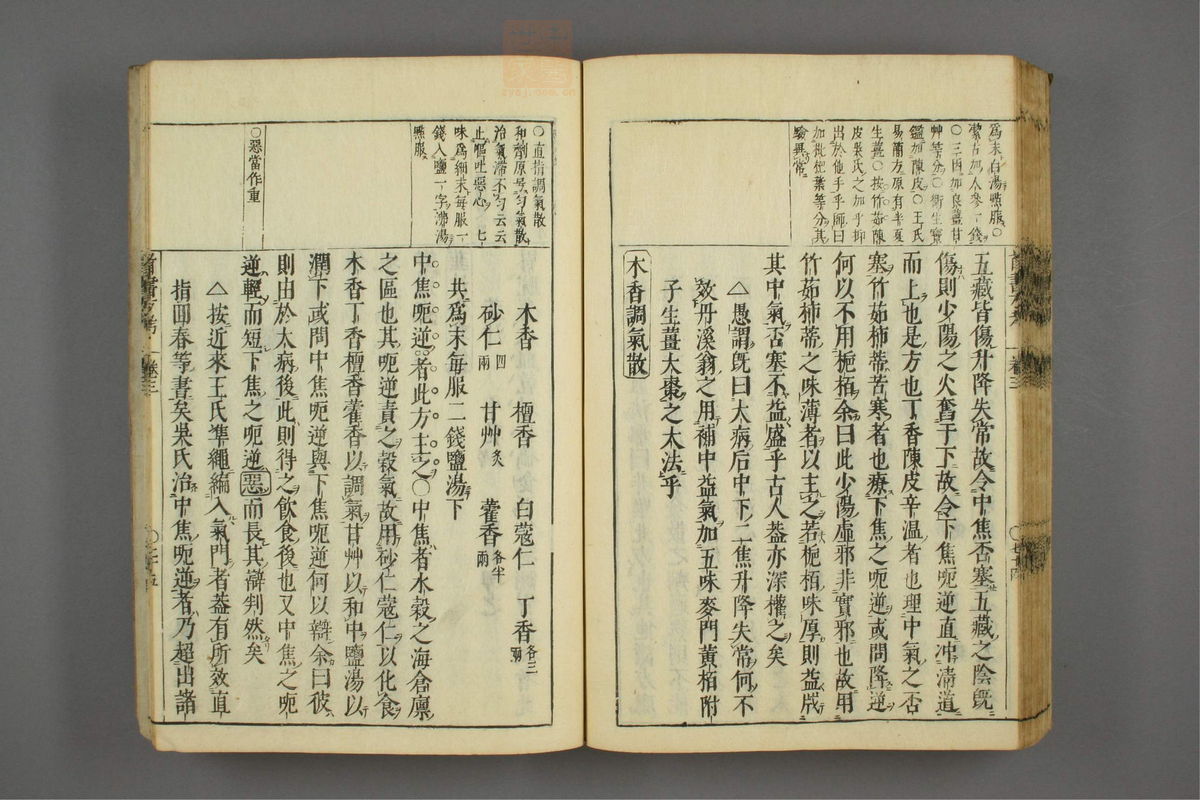 為末白湯㸃服○
潔古加人參一錢
○三因加良薑甘
艸等分○衛生寶
鑑加陳皮○王氏
易簡方原有半夏
生薑○按竹茹陳
皮吳氏之加乎抑
出於他乎乎師曰
加枇杷葉等分其
驗異常
五藏皆傷升降失常故令中焦否塞五藏之陰旣
傷則少陽之火舊于下故令下焦呃逆直冲清道
而上也是方也丁香陳皮辛温者也理中氣之否
塞竹茹柿蒂苦寒者也療下焦之呃逆或問降逆
何以不用梔栢余曰此少陽虛邪非實邪也故用
竹茹柿蒂之味薄者以主之若梔栢味厚則益戕
其中氣否塞不益盛乎古人蓋亦深權之矣
△愚謂旣曰大病后中下二焦升降失常何不
效丹溪翁之用補中益氣加五味麥門黃栢附
子生薑大棗之太法乎
木香調氣散
○直指調氣散
和劑原号匀氣散
治氣滯不匀云云
止嘔吐惡心七
味爲細末每服一
錢入鹽一字沸湯
㸃服
○惡當作重
木香 檀香 白蔻仁 丁香各三兩
砂仁四兩 甘艸炙 藿香各半兩
共爲末每服二錢鹽湯下
中焦呃逆者此方主之○中焦者水穀之海倉廪
之區也其呃逆責之穀氣故用砂仁蔻仁以化食
木香丁香檀香藿香以調氣甘艸以和中鹽湯以
潤下或問中焦呃逆與下焦呃逆何以辯余曰彼
則由於大病後此則得之飲食後也又中焦之呃
逆輕而短下焦之呃逆惡而長其辯判然矣
△按近來王氏準繩編入氣門者蓋有所效直
指回春等書矣吳氏治中焦呃逆者乃超出諸